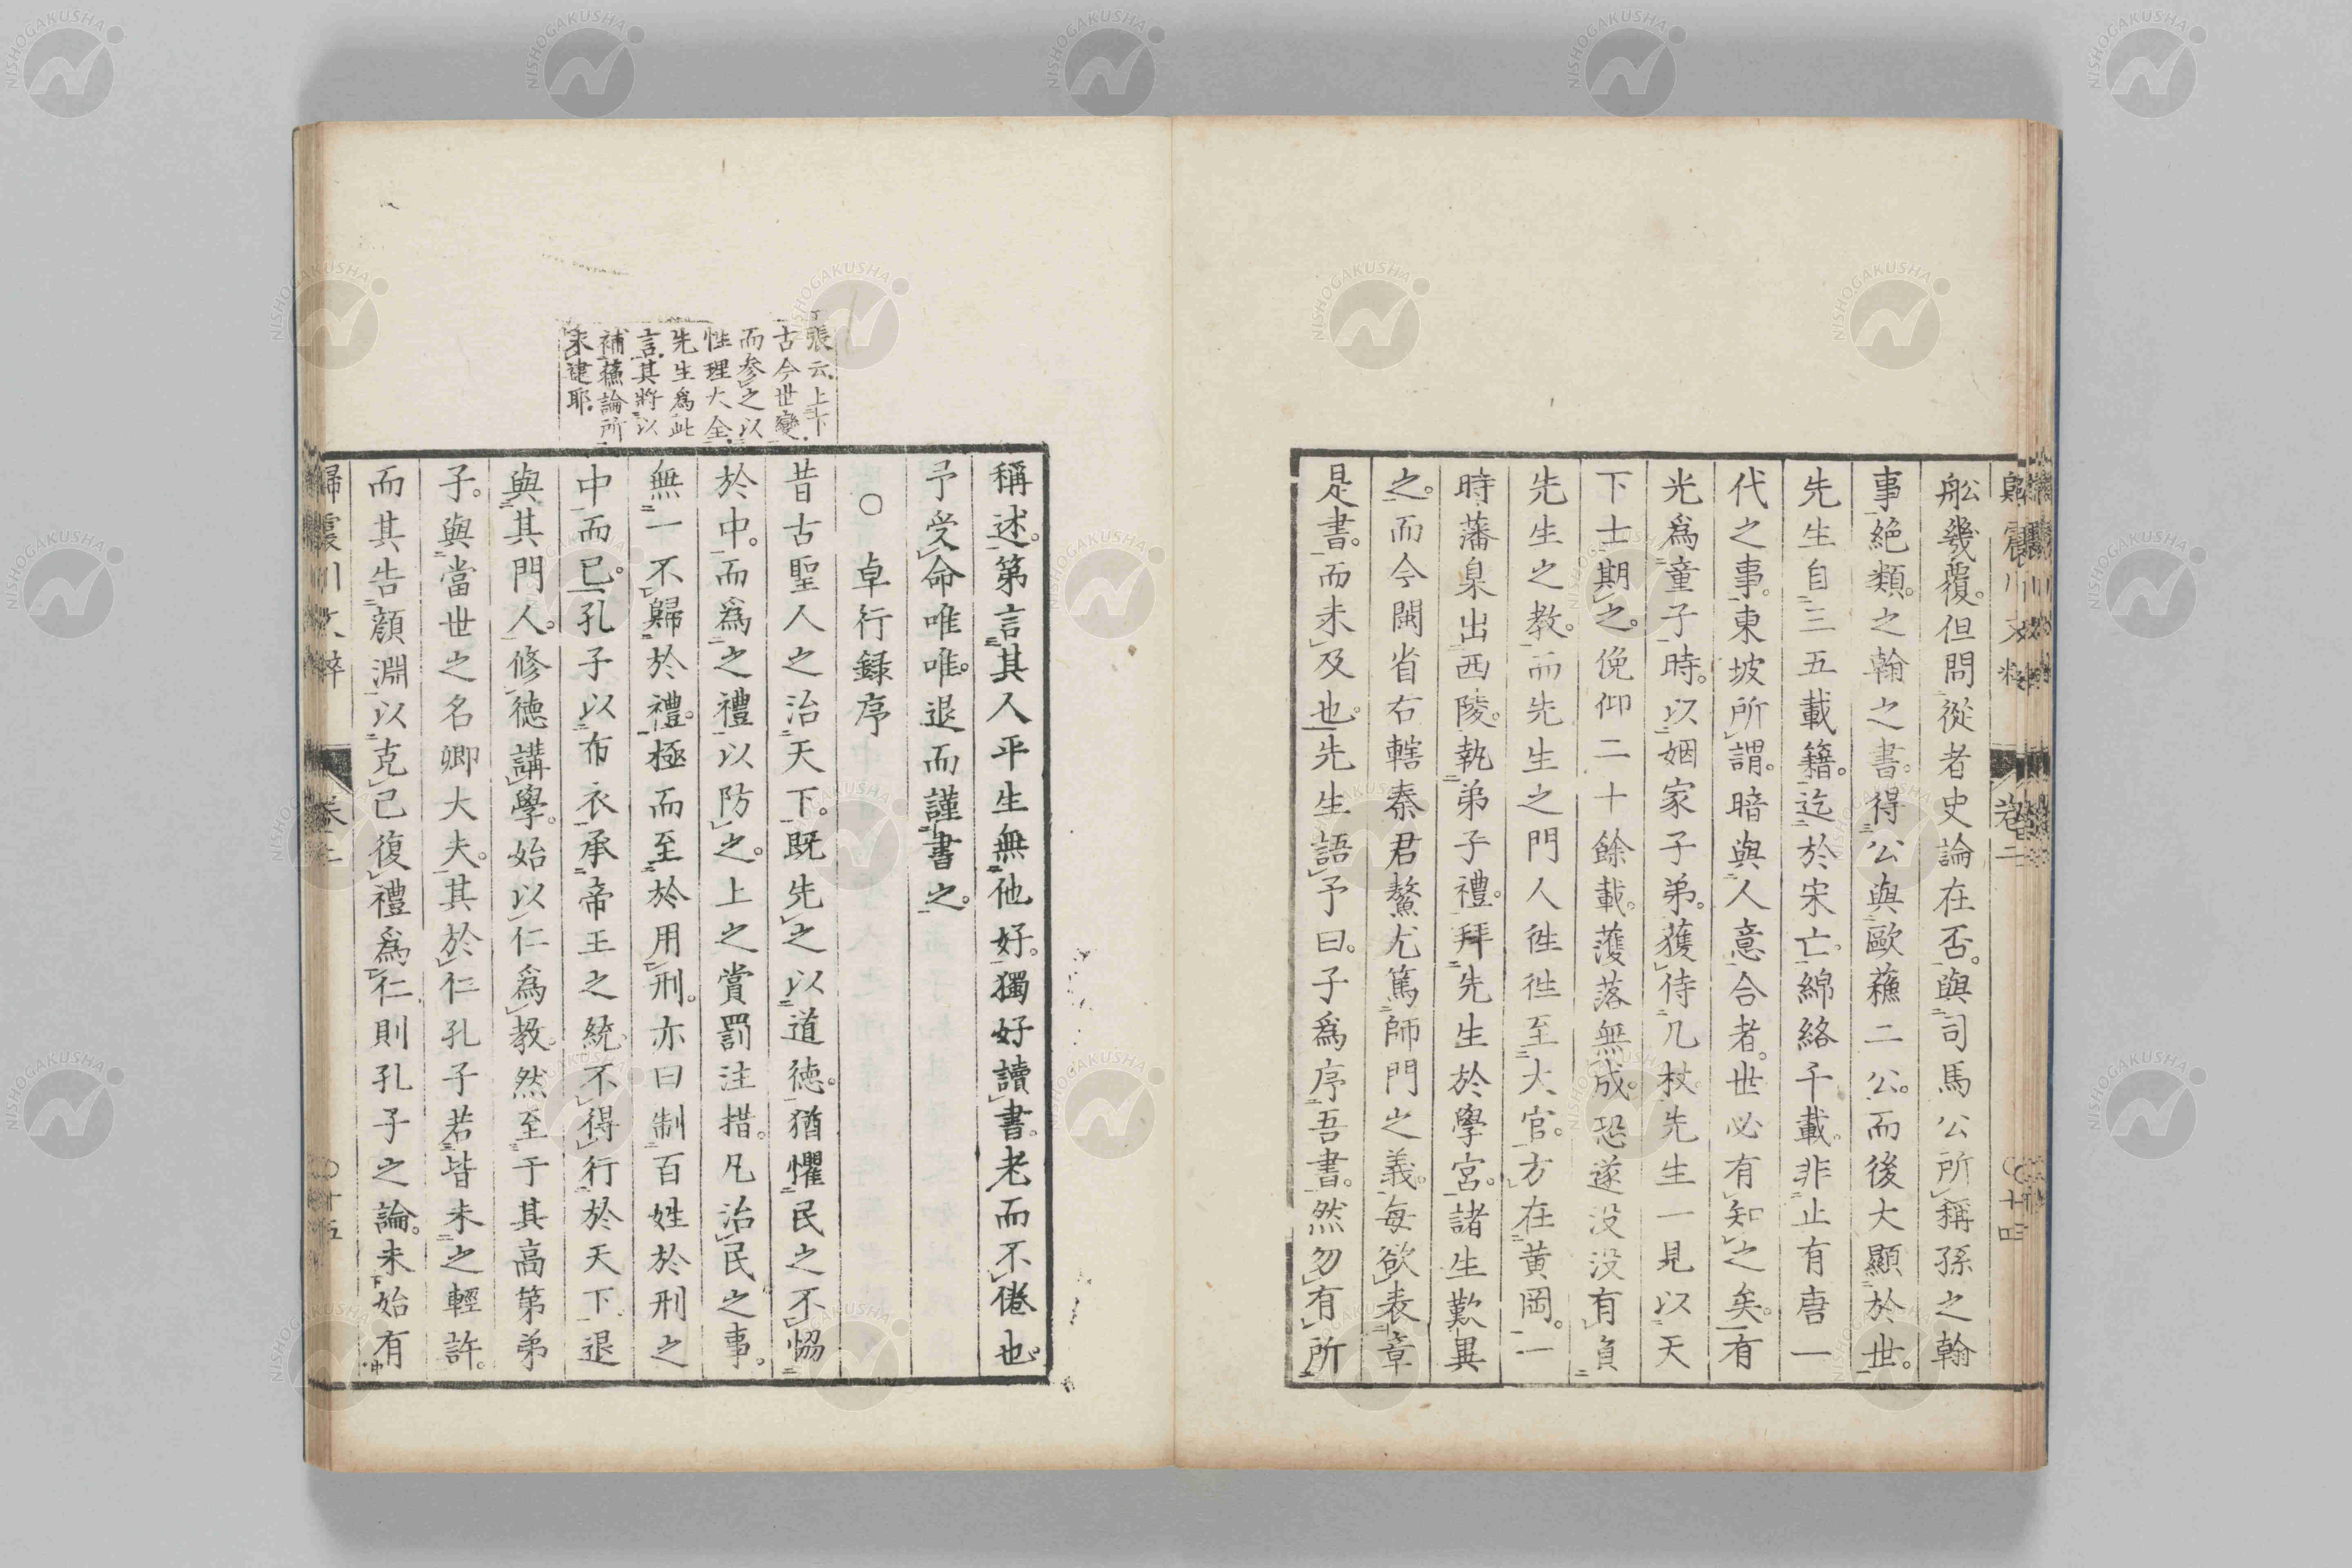 舩幾覆。但問從者史論在否。與司馬公所稱孫之翰
事絕類。之翰之書。得公與歐蘓二公。而後大顯於世。
先生自三五載籍。迄於宋亡。綿絡千載。非止有唐一
代之事。東坡所謂。暗與人意合者。世必有知之矣。有
光爲童子時。以姻家子弟。獲侍几杖。先生一見以天
下士期之。俛仰二十餘載。濩落無成。恐遂没没有負
先生之教。而先生之門人徃徃至大官。方在黄岡。一
時藩臬出西陵。執弟子禮。拜先生於學宮。諸生歎異
之。而今閩省右轄秦君鰲尤篤師門之義。每欲表章
是書。而未及也。先生語予曰。子爲序吾書。然勿有所
歸震川文粹 卷二 〇十四
張云。上下
古今世變。
而参之以
性理大全。
先生爲此
言。其將以
補蘓論所
未逮耶。
稱述。第言其人平生無他好。獨好讀書。老而不倦也。
予受命唯唯。退而謹書之。
〇 卓行録序
昔古聖人之治天下。既先之以道德。猶懼民之不恊
於中。而爲之禮以防之。上之賞罰注措。凡治民之事。
無一不歸於禮。極而至於用刑。亦曰制百姓於刑之
中而已。孔子以布衣承帝王之統。不得行於天下。退
與其門人。修德講學。始以仁爲教。然至于其高第弟
子。與當世之名卿大夫。其於仁孔子若皆未之輕許。
而其告顔淵以克己復禮爲仁則孔子之論。未始有
歸震川文粹 卷二 〇十五
NISHOGAKUSHA